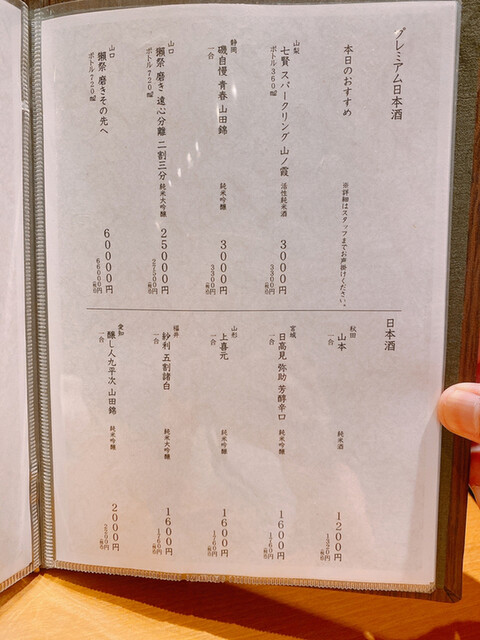 プレミアム日本酒
本日のおすすめ
※詳細はスタッフまでお声掛けください。
山梨
七賢 スパークリング 山ノ霞 活性純米酒
ボトル360㎖
3000円
3300円(税込)
静岡
磯自慢 青春 山田錦 純米吟醸
一合
3000円
3300円(税込)
山口
獺祭 磨き 遠心分離 二割三分 純米大吟醸
ボトル720㎖
25000円
27500円(税込)
山口
獺祭 磨きその先へ
ボトル720㎖
60000円
66000円(税込)
日本酒
秋田
山本 純米酒
一合
1200円
1320円(税込)
宮城
日高見 弥助 芳醇辛口 純米吟醸
一合
1600円
1760円(税込)
山形
上喜元 純米吟醸
一合
1600円
1760円(税込)
福井
紗利 五割諸白 純米大吟醸
一合
1600円
1760円(税込)
愛知
醸し人九平次 山田錦 純米吟醸
一合
2000円
2200円(税込)